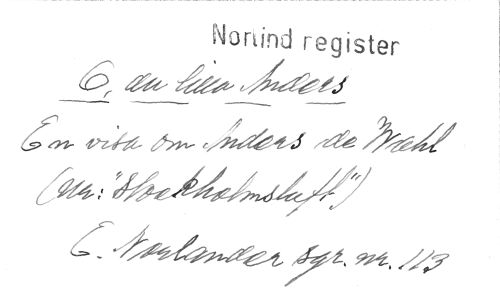 Norlind register
O, du lilla Anders
En visa om Anders de Wahl
(ur: "Stockholmsluft")
E. Norlander sgr. nr. 113